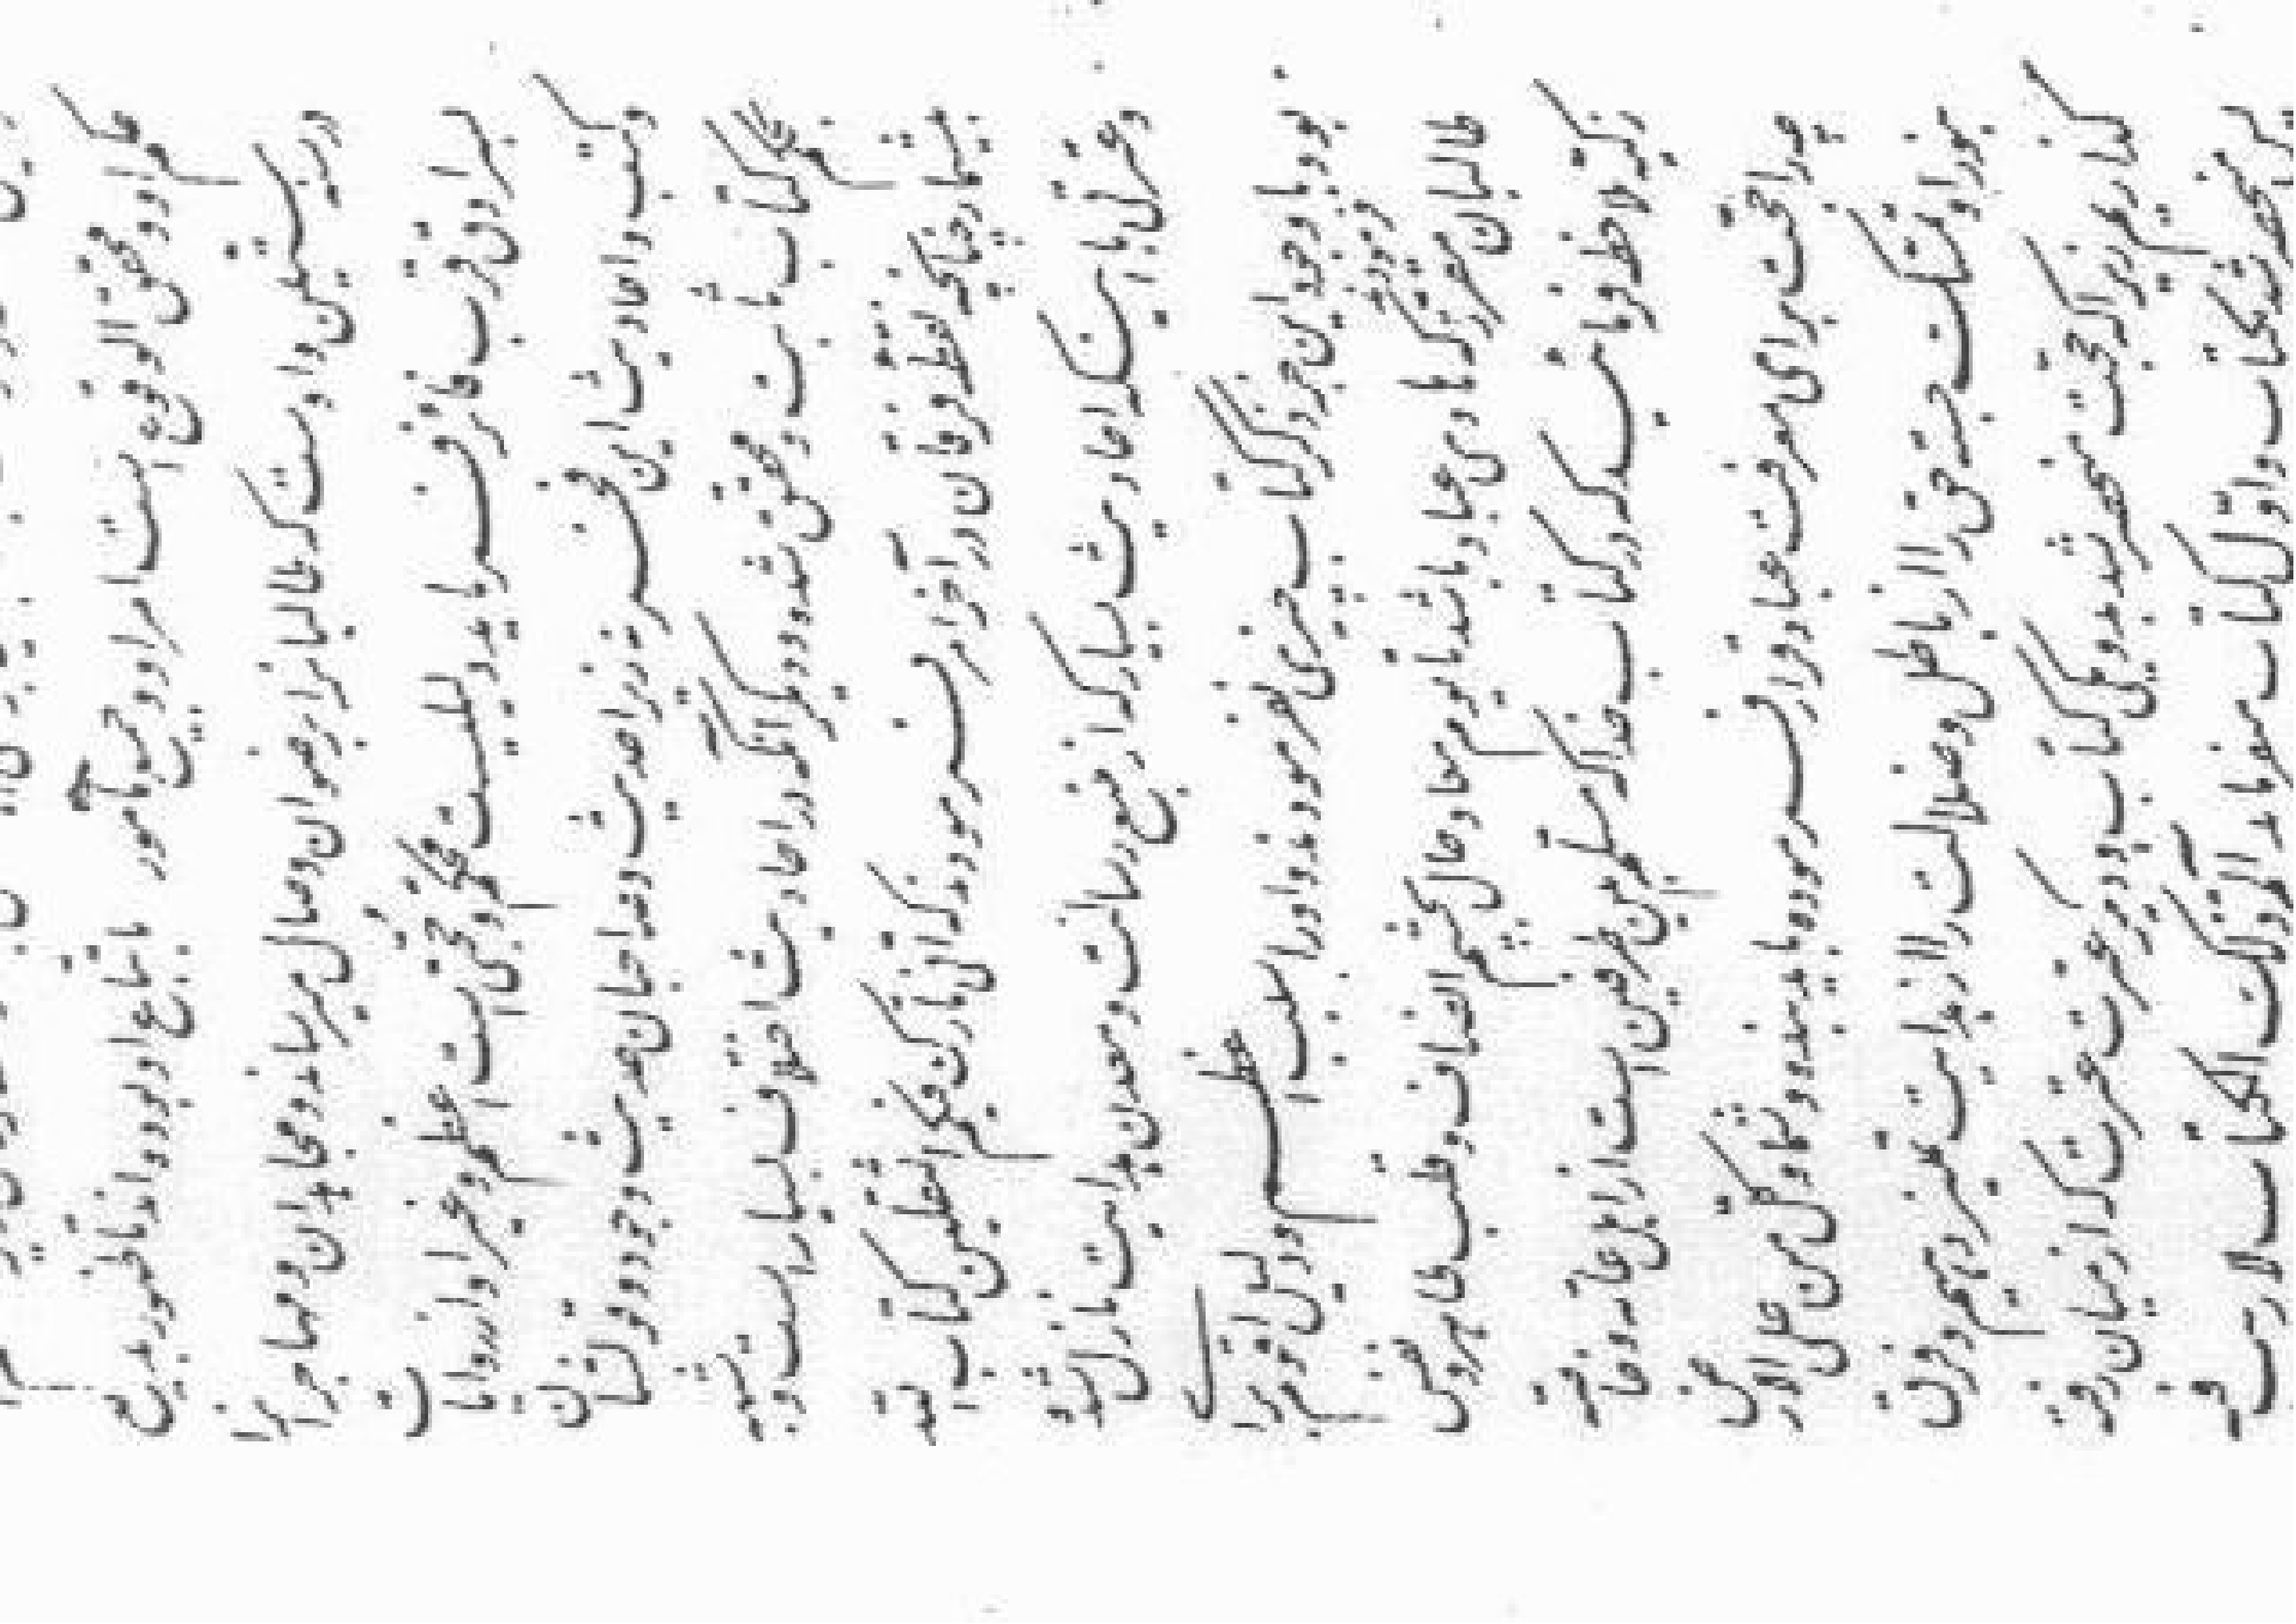 حکم او و محقق الوقوع است امر او و جمیع مأمور باتباع او بوده‌اند تا ظهور بدیع
در سنه ستین و اوست که طالبانرا برضوان وصال میرساند و مجاهدان و مهاجرانرا
بسرادق قرب فائز فرماید دلیلیست محکم و حجتی است اعظم و غیر او از روایات
و کتب و احادیث این فخر نه زیرا حدیث و صاحبان حدیث وجود و قولشان
بحکم کتاب ثابت و محقق شود و دیگر آنکه در احادیث اختلاف بسیار است و شبهه
بیشمار چنانچه نقطه فرقان در آخر امر فرمودند که انی تارک فیکم الثقلین کتاب الله
و عترتی با اینکه احادیث بسیار که از منبع رسالت و معدن هدایت نازل شده
بود با وجود این جز ذکر کتاب چیزی نفرمودند و او را سبب اعظم و دلیل اقوم برای
طالبان مقرر فرمودند که هادی عباد باشد تا یوم میعاد حال بچشم انصاف و قلب طاهر و نفس
زکیه ملاحظه فرمائید که در کتاب خدا که مسلم بین طرفین است از اهل عامه و خاصه
چه را حجت برای معرفت عباد قرار فرموده باید بنده و شما و کل من علی الارض
بنور او تمسک جسته حق را از باطل و ضلالت را از هدایت تمیز دهیم و فرق
گذاریم زیرا که حجت منحصر شد بدو یکی کتاب و دیگر عترت عترت که از میان رفته
پس منحصر شد بکتاب و اول کتاب میفرماید الم ذلک الکتاب لا ریب فیه